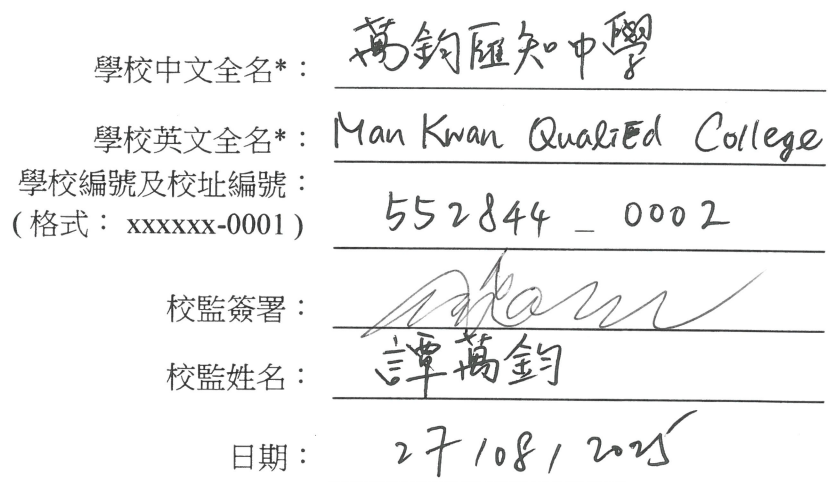 學校中文全名*： 萬鈞匯知中學
學校英文全名*： Man Kwan QualiEd College
學校編號及校址編號：
( 格式： xxxxxx-0001 ) 552844 - 0002
校監簽署：
校監姓名： 譚萬鈞
日期： 27/08/2025